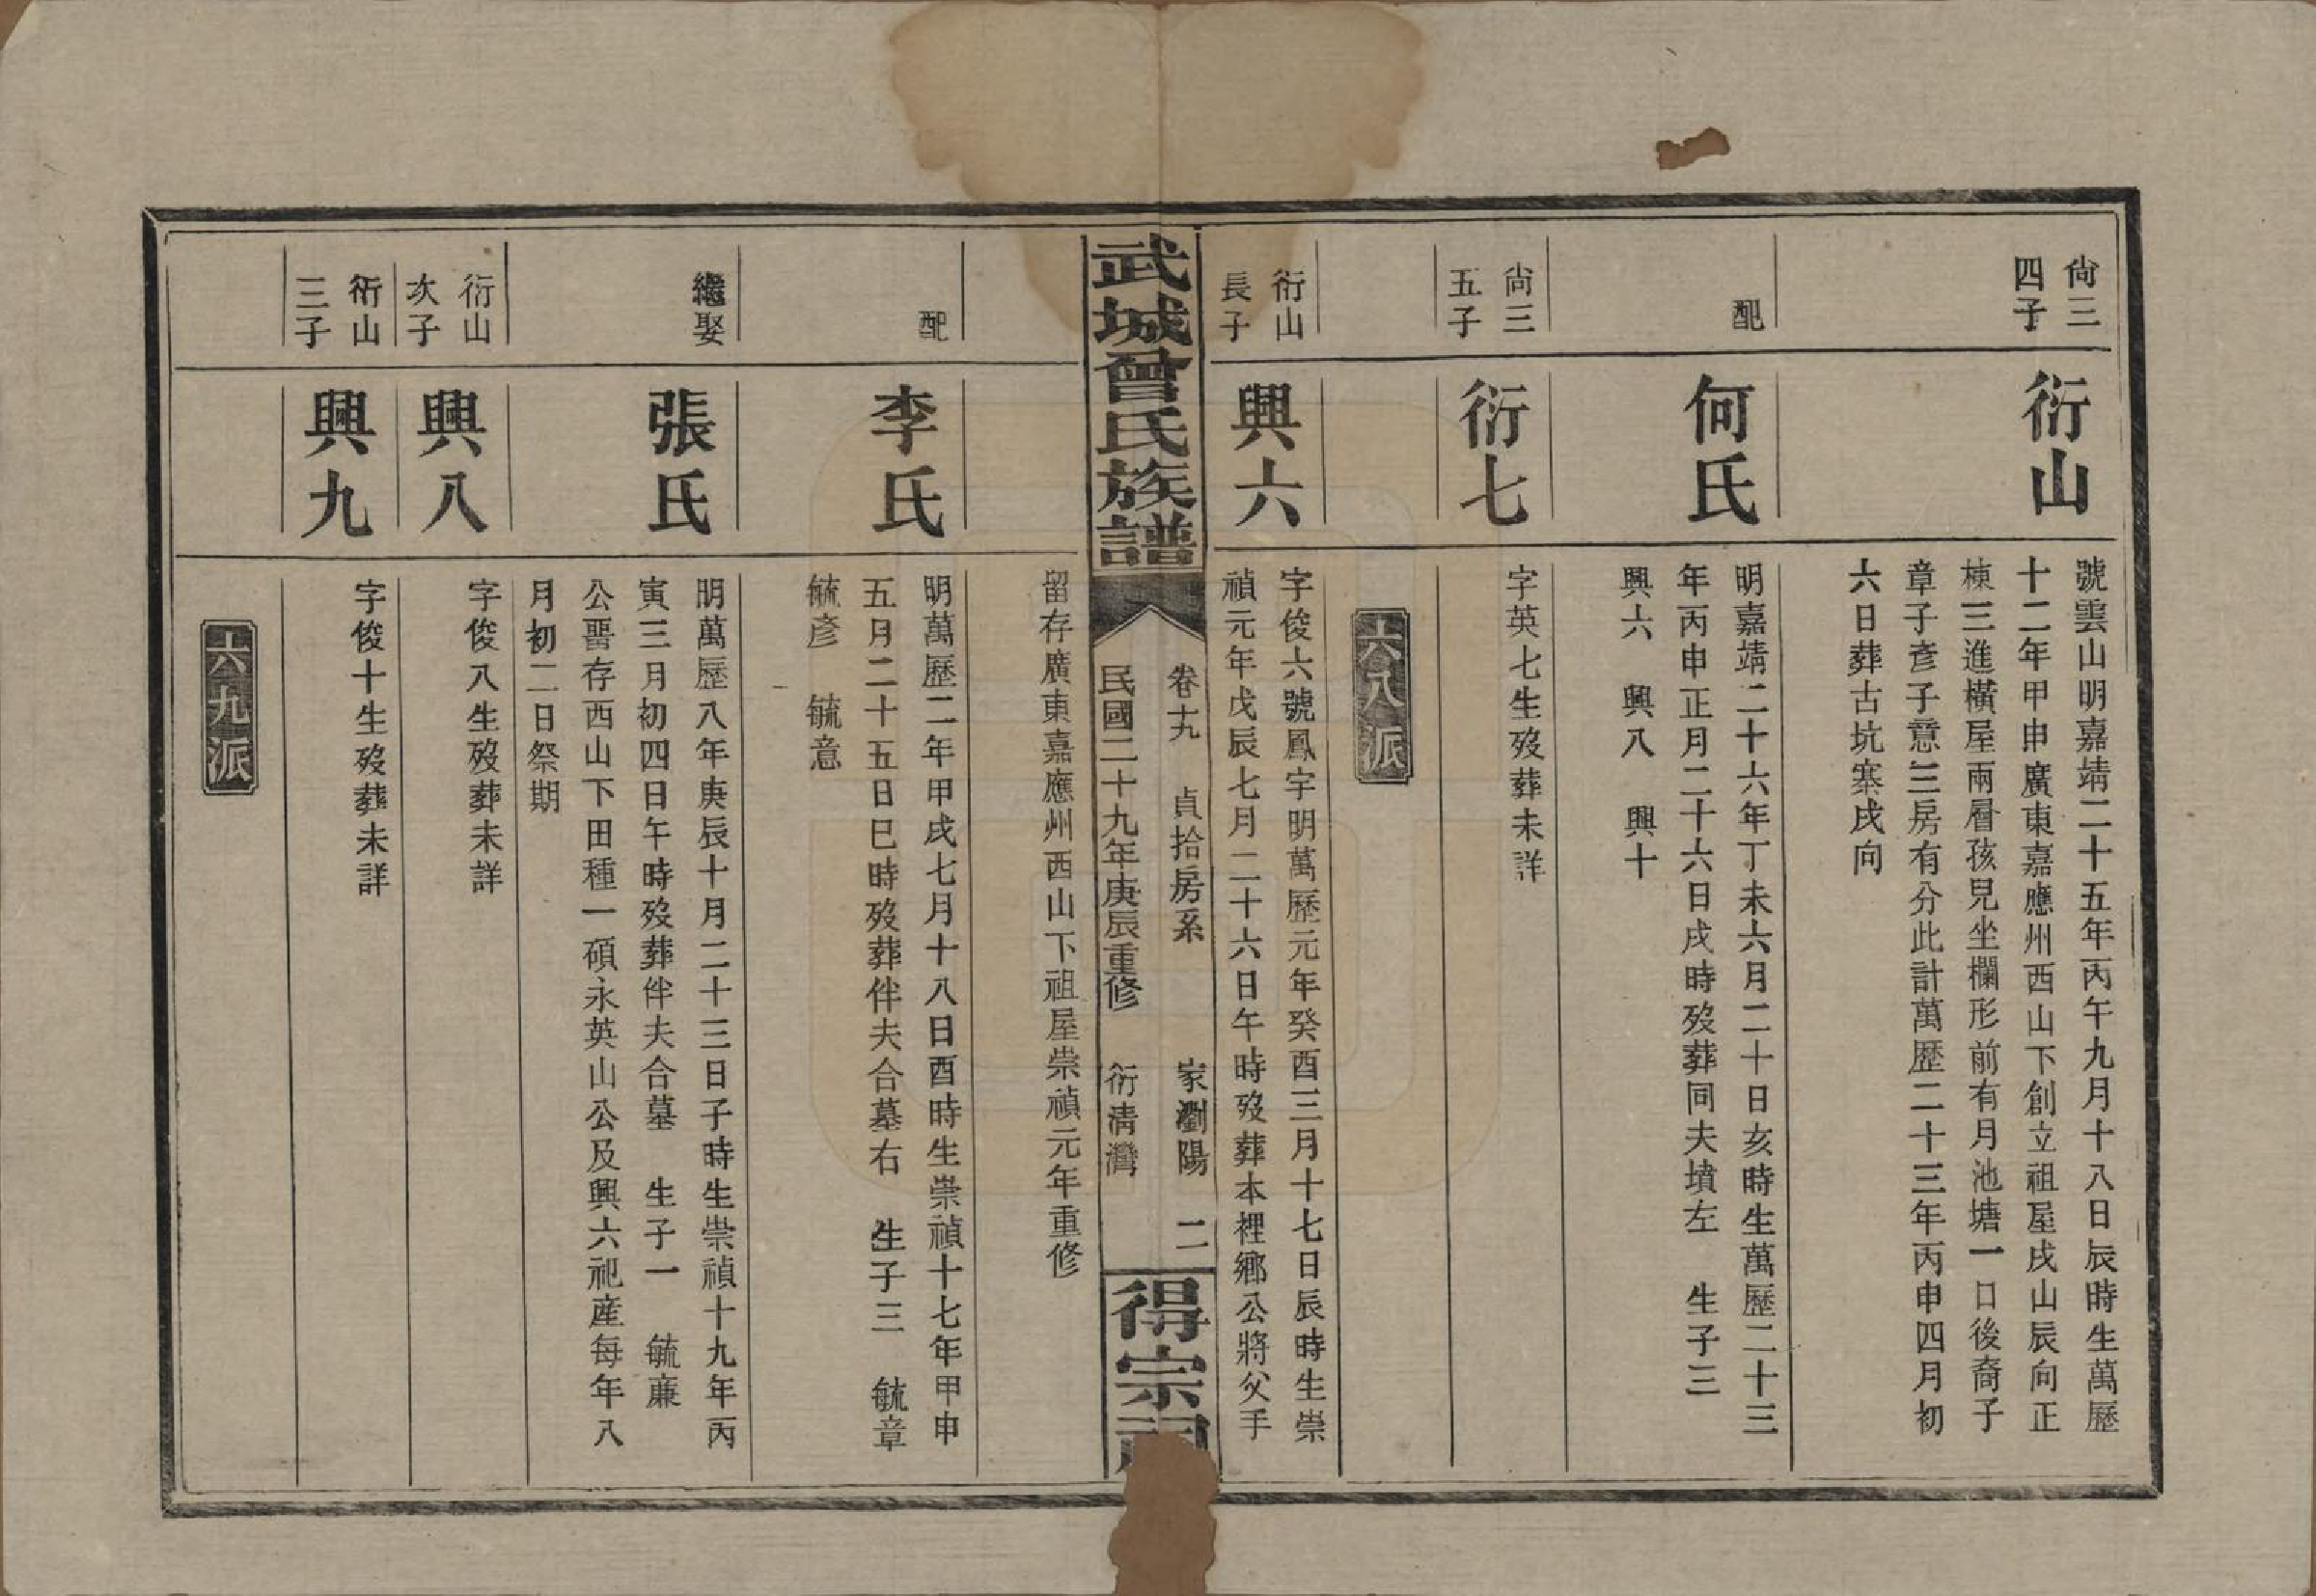 尙三
四子
衍山
號雲山明嘉靖二十五年丙午九月十八日辰時生萬歷
十二年甲申廣東嘉應州西山下創立祖屋戌山辰向正
棟三進橫屋兩層孩兒坐欄形前有月池塘一口後裔子
章子彥子意三房有分此計萬歷二十三年丙申四月初
六日葬古坑寨戌向
配
何氏
明嘉靖二十六年丁未六月二十日亥時生萬歷二十三
年丙申正月二十六日戌時歿葬同夫墳左 生子三
興六 興八 興十
尙三
五子
衍七
字英七生歿葬未詳
六八派
衍山
長子
興六
字俊六號鳳宇明萬歷元年癸酉三月十七日辰時生崇
禎元年戊辰七月二十六日午時歿葬本裡鄉公將父手
武城曾氏族譜
卷十九 貞拾房系 家瀏陽 二
民國二十九年庚辰重修 衍清灣
得宗祠
留存廣東嘉應州西山下祖屋崇禎元年重修
配
李氏
明萬歷二年甲戌七月十八日酉時生崇禎十七年甲申
五月二十五日巳時歿葬伴夫合墓右 生子三 毓章
毓彥 毓意
繼娶
張氏
明萬歷八年庚辰十月二十三日子時生崇禎十九年丙
寅三月初四日午時歿葬伴夫合墓 生子一 毓蔴
公畱存西山下田種一碩永英山公及興六祀產每年八
月初二日祭期
衍山
次子
興八
字俊八生歿葬未詳
衍山
三子
興九
字俊十生歿葬未詳
六九派